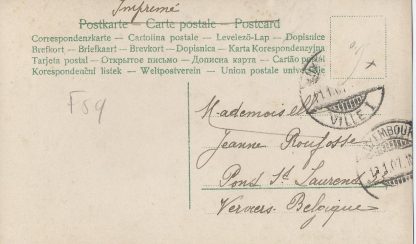 Imprimé
Postkarte – Carte postale – Postcard
Correspondenzkarte – Cartolina postale – Levelező-Lap – Dopisnica
Brefkort – Briefkaart – Brevkort – Dopisnica – Karta Korespondenzyina
Tarjeta postal – Открытое письмо – Дописна карта – Cartão postal
Korespondenční lístek – Weltpostverein – Union postale universelle
F59
Mademoiselle
Jeanne Roufosse
Pond St Laurend
Verviers Belgique
VILLE 1